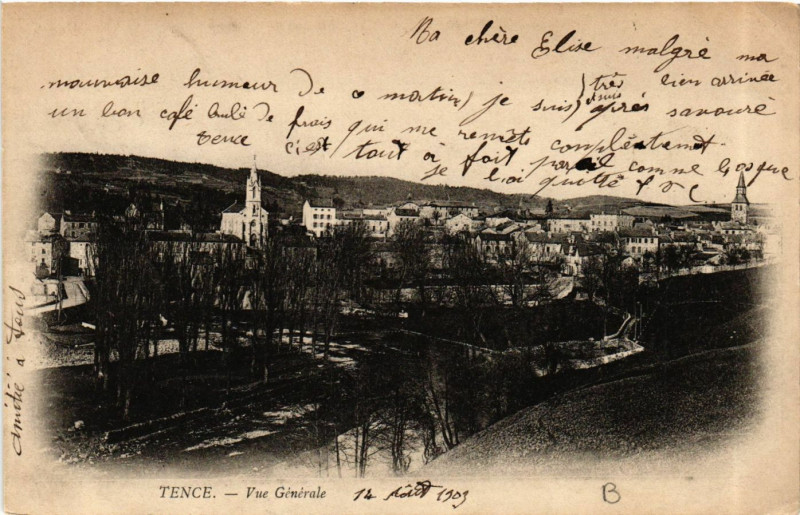 Ma chère Elise malgré ma
mauvaise humeur de ce matin, je suis très bien arrivée
et suis après savouré
un bon café au lait de frais qui me remets complètement.
Tence c'est tout à fait pareil comme lorsque
je l'ai quitté
amitié à tous
TENCE. — Vue Générale
14 Août 1903
B